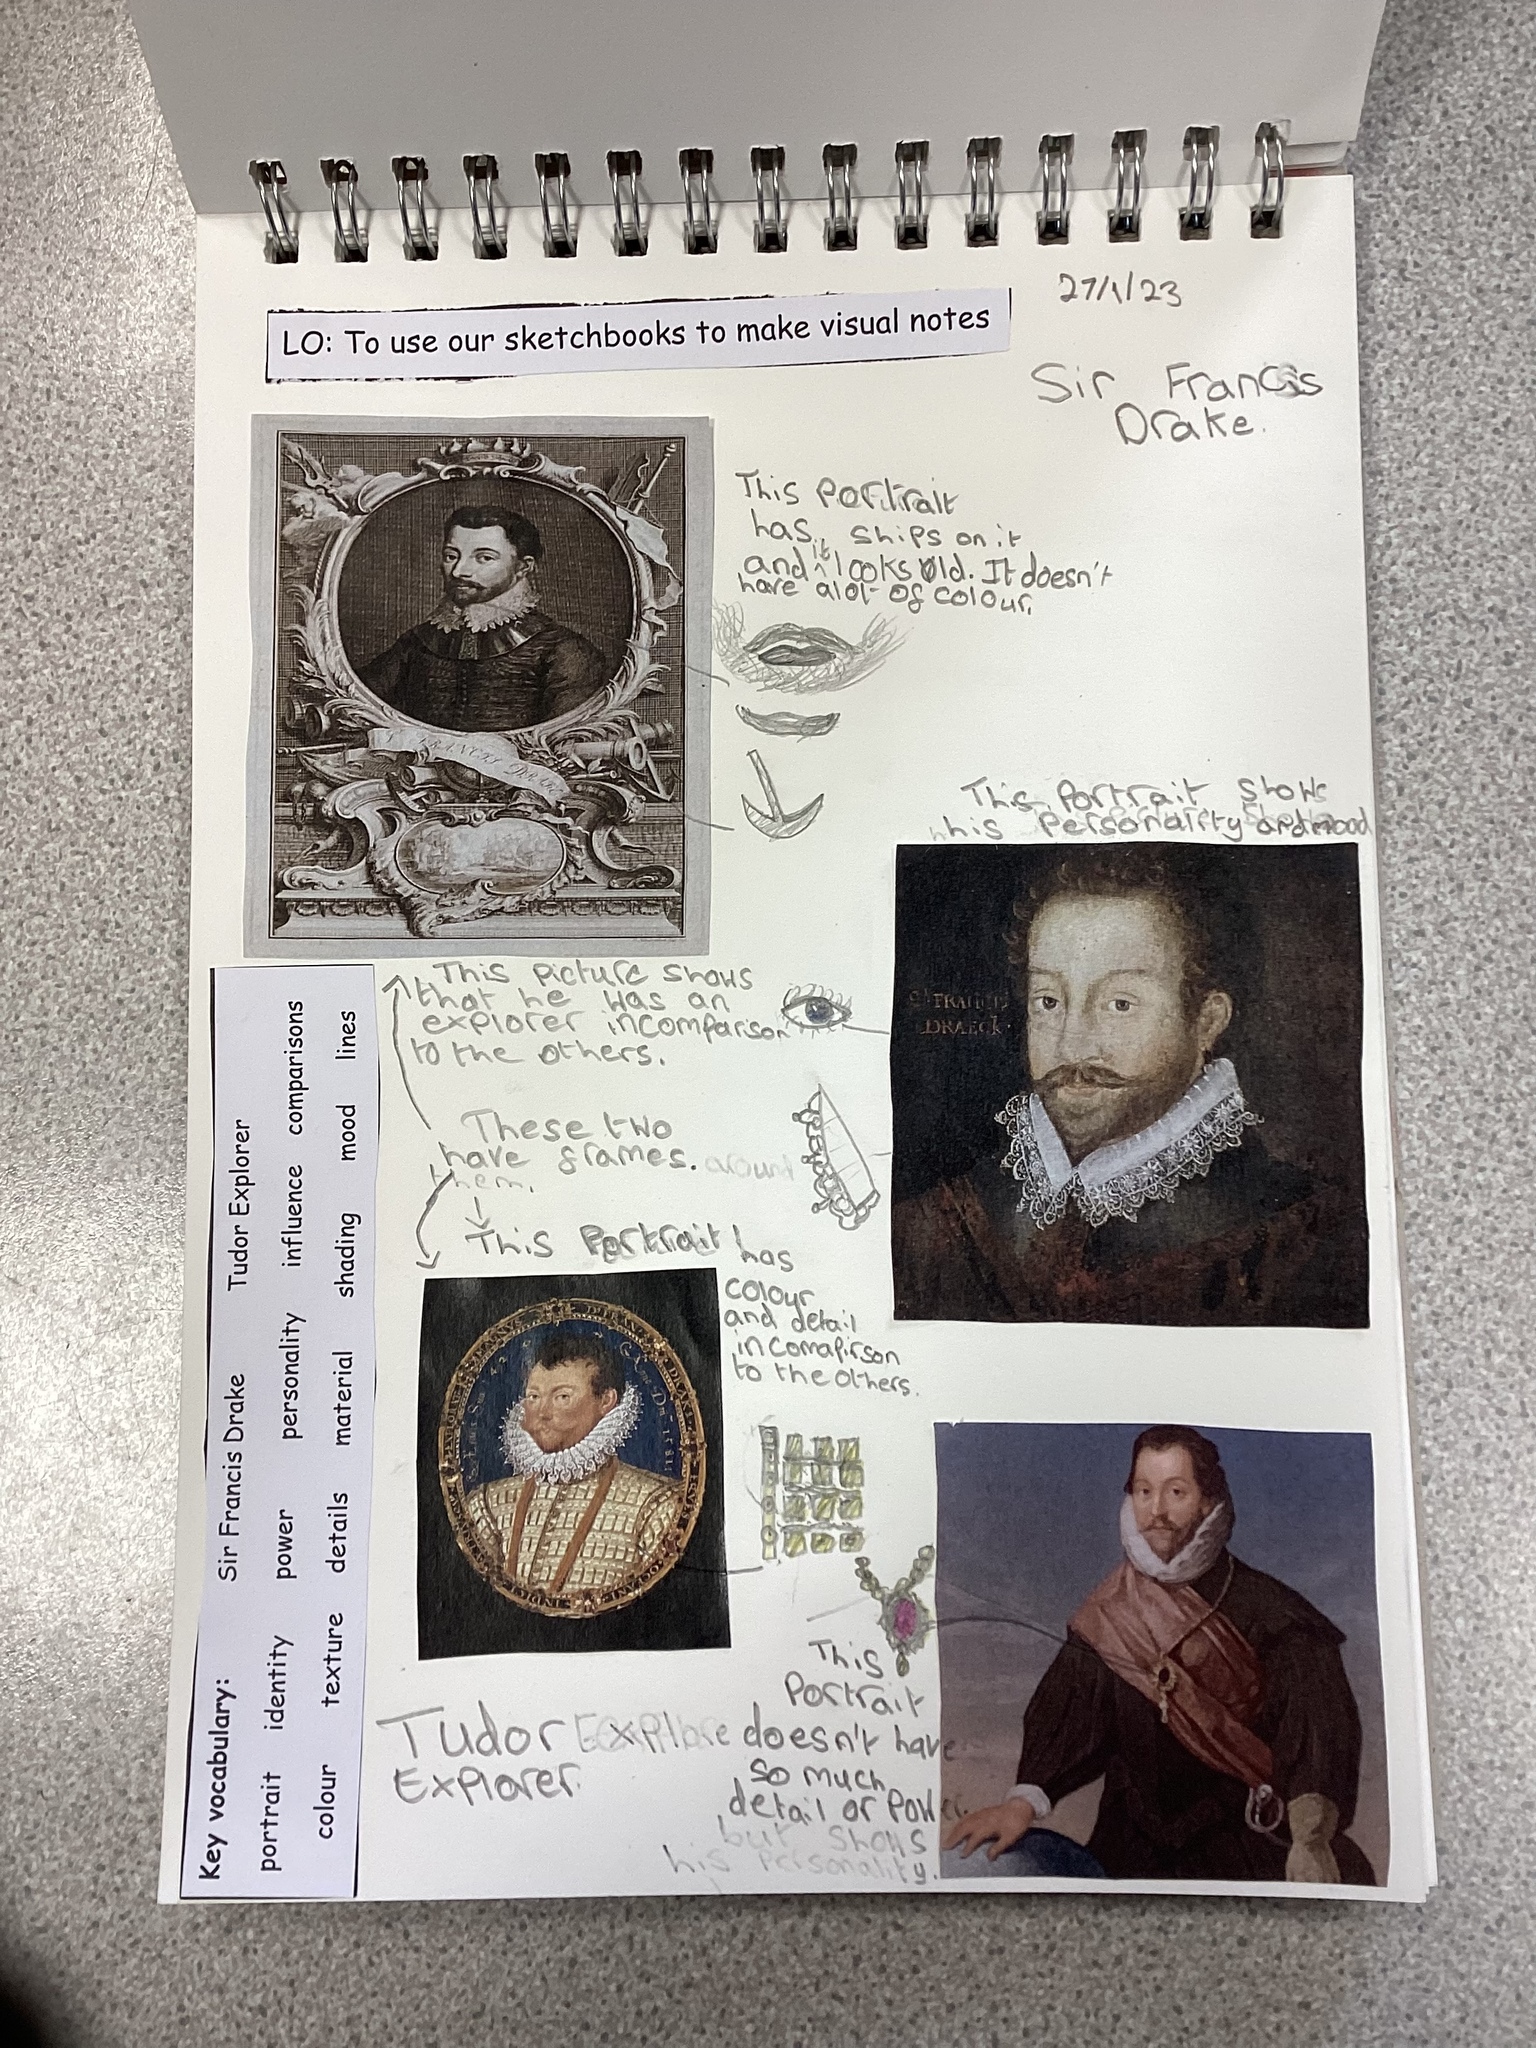 27/1/23
LO: To use our sketchbooks to make visual notes
Sir Francis
Drake.
This Portrait
has ships on it
and it looks old. It doesn't
have alot of colour.
This Portrait shows
his Personality and mood
Sr FRANCIS
DRAECK
This picture shows
that he was an
explorer incomparison
to the others.
These two
have frames. around
them.
This Portrait has
colour
and detail
in comapirson
to the others.
This
Portrait
doesn't have
so much
detail or Power.
but shows
his Personality.
Tudor Explore
Explorer.
Key vocabulary: Sir Francis Drake Tudor Explorer
portrait identity power personality influence comparisons
colour texture details material shading mood lines